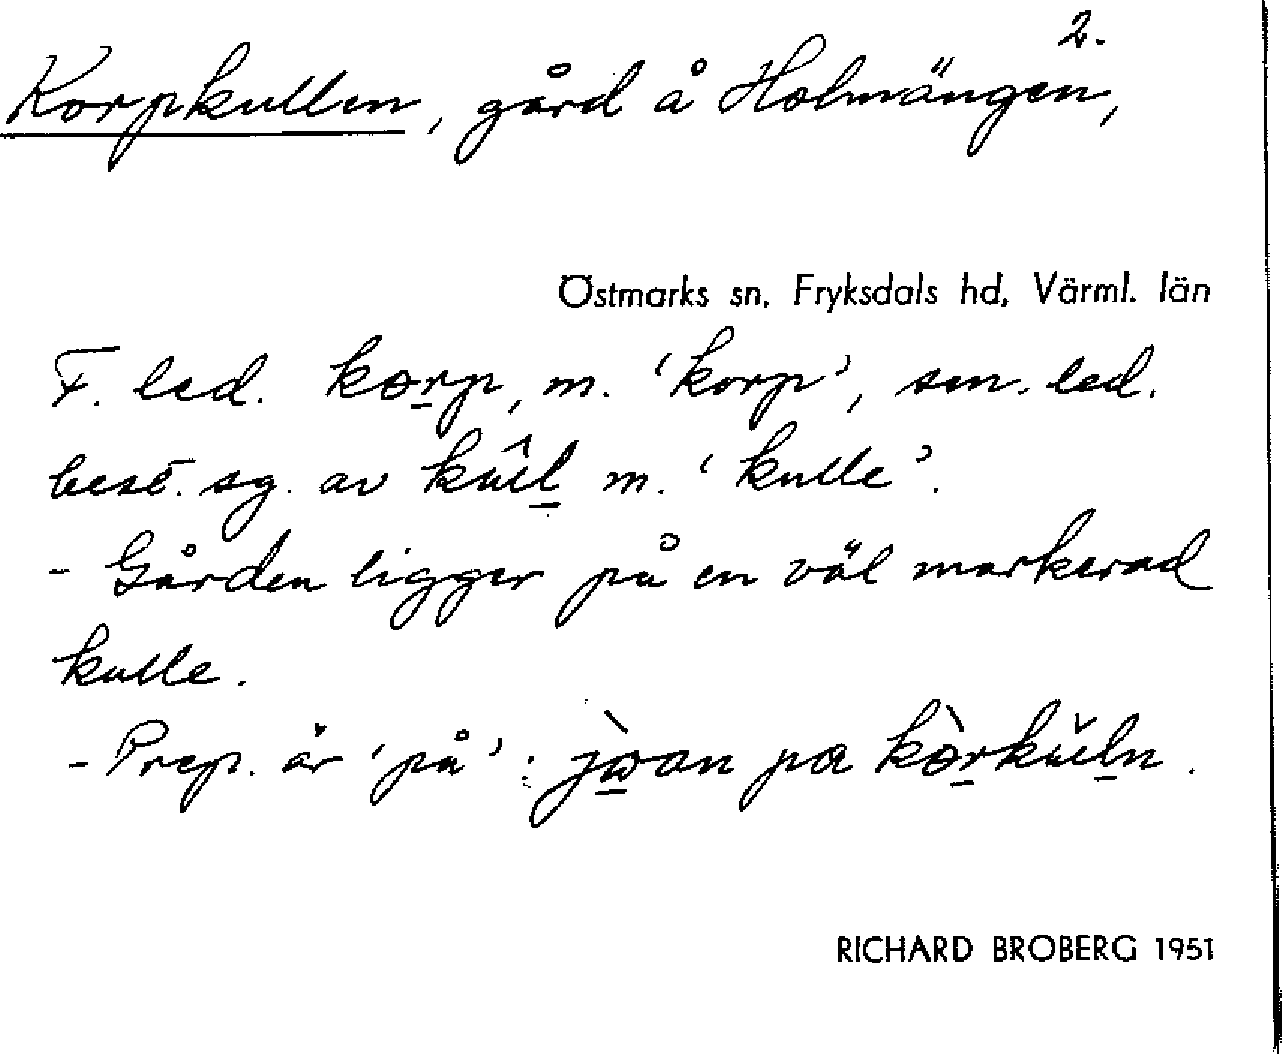 2.
Korpkullen, gård å Holmängen,
Östmarks sn, Fryksdals hd, Värml. län
F. led. korp, m. 'korp', sen. led.
best. sg. av kûl m. 'kulle'.
- Gården ligger på en väl markerad
kulle.
- Prep. är 'på': jò̱an pa kòrkŭln.
RICHARD BROBERG 1951